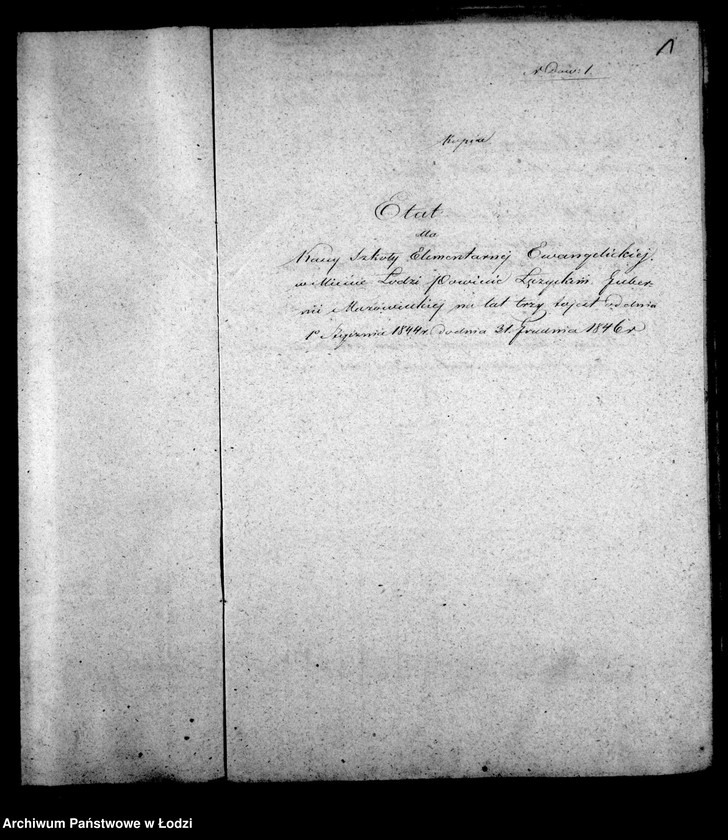 1
N Dow: 1.
Kopia
Etat
dla
Kassy Szkoły Elementarnej Ewangelickiej
w Mieście Łodzi Powiecie Łęczyckim Guber-
nii Mazowieckiej na lat trzy to jest od dnia
1º Stycznia 1844 r. do dnia 31. Grudnia 1846 r.
Archiwum Państwowe w Łodzi